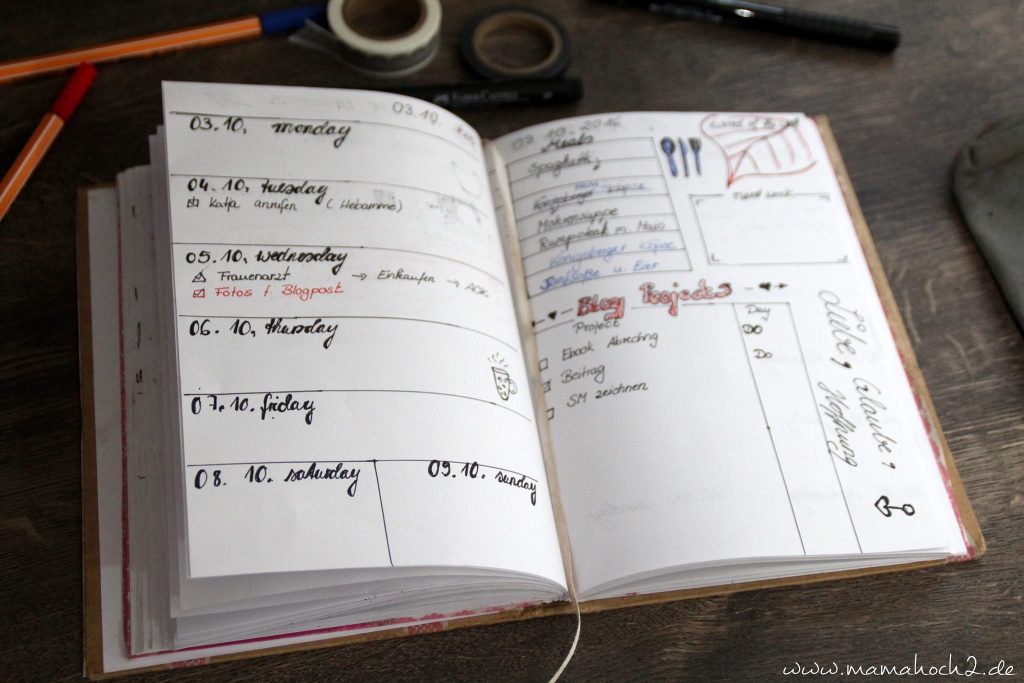 03.10.
03.10, monday
04.10, tuesday
Katja anrufen (Hebamme)
05.10, wednesday
Frauenarzt → Einkaufen → AOK
Fotos f. Blogpost
06.10, thursday
07.10. friday
08.10. saturday
09.10. sunday
09.10-2016
Meals
Spaghetti
Königsberger Klöpse
Möhrensuppe
Rumpsteak m. Mais
Königsberger Klöpse
u. Eier
word of the
next week
Blog Projects
Project Day
Ebook Abrechng Do
Beitrag
SM zeichnen
Liebe, Glaube,
Hoffnung
FABER-CASTELL
www.mamahoch2.de